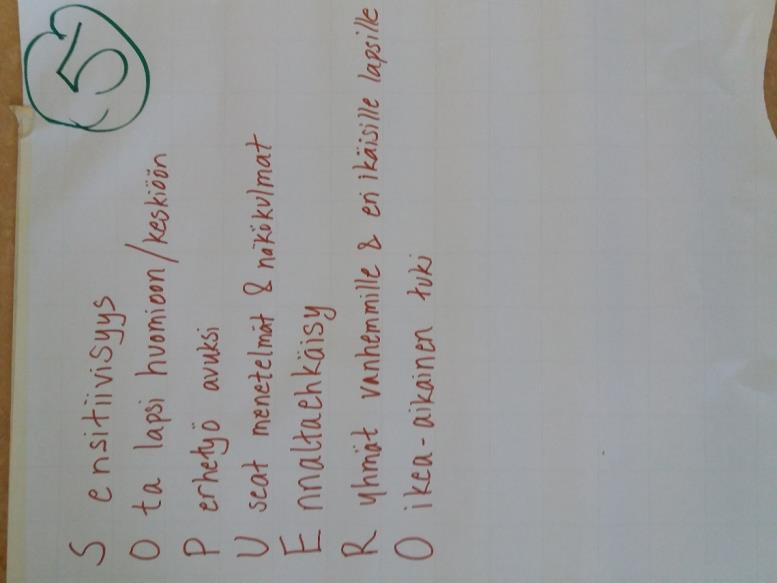 5
S ensitiivisyys
O ta lapsi huomioon/keskiöön
P erhetyö avuksi
U seat menetelmät & näkökulmat
E nnaltaehkäisy
R yhmät vanhemmille & eri ikäisille lapsille
O ikea-aikainen tuki